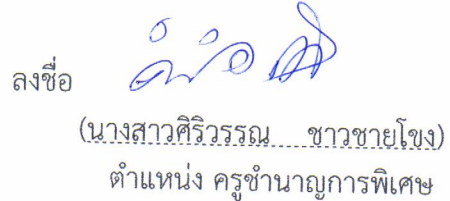 ลงชื่อ
(นางสาวศิริวรรณ ชาวชายโขง)
ตำแหน่ง ครูชำนาญการพิเศษ